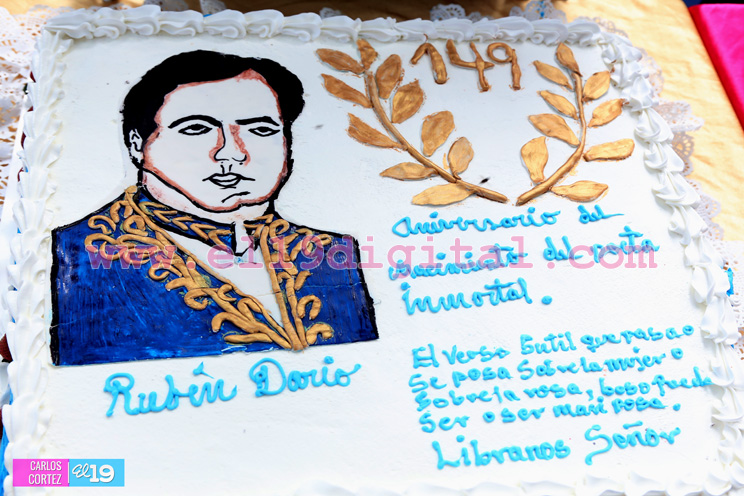 149
Aniversario del
nacimiento del poeta
inmortal.
El verso Sutil que pasa o
Se posa Sobre la mujer o
sobre la rosa, beso puede
Ser o ser mariposa.
Libranos Señor
Rubén Dario
www.el19digital.com
CARLOS
CORTEZ
El 19